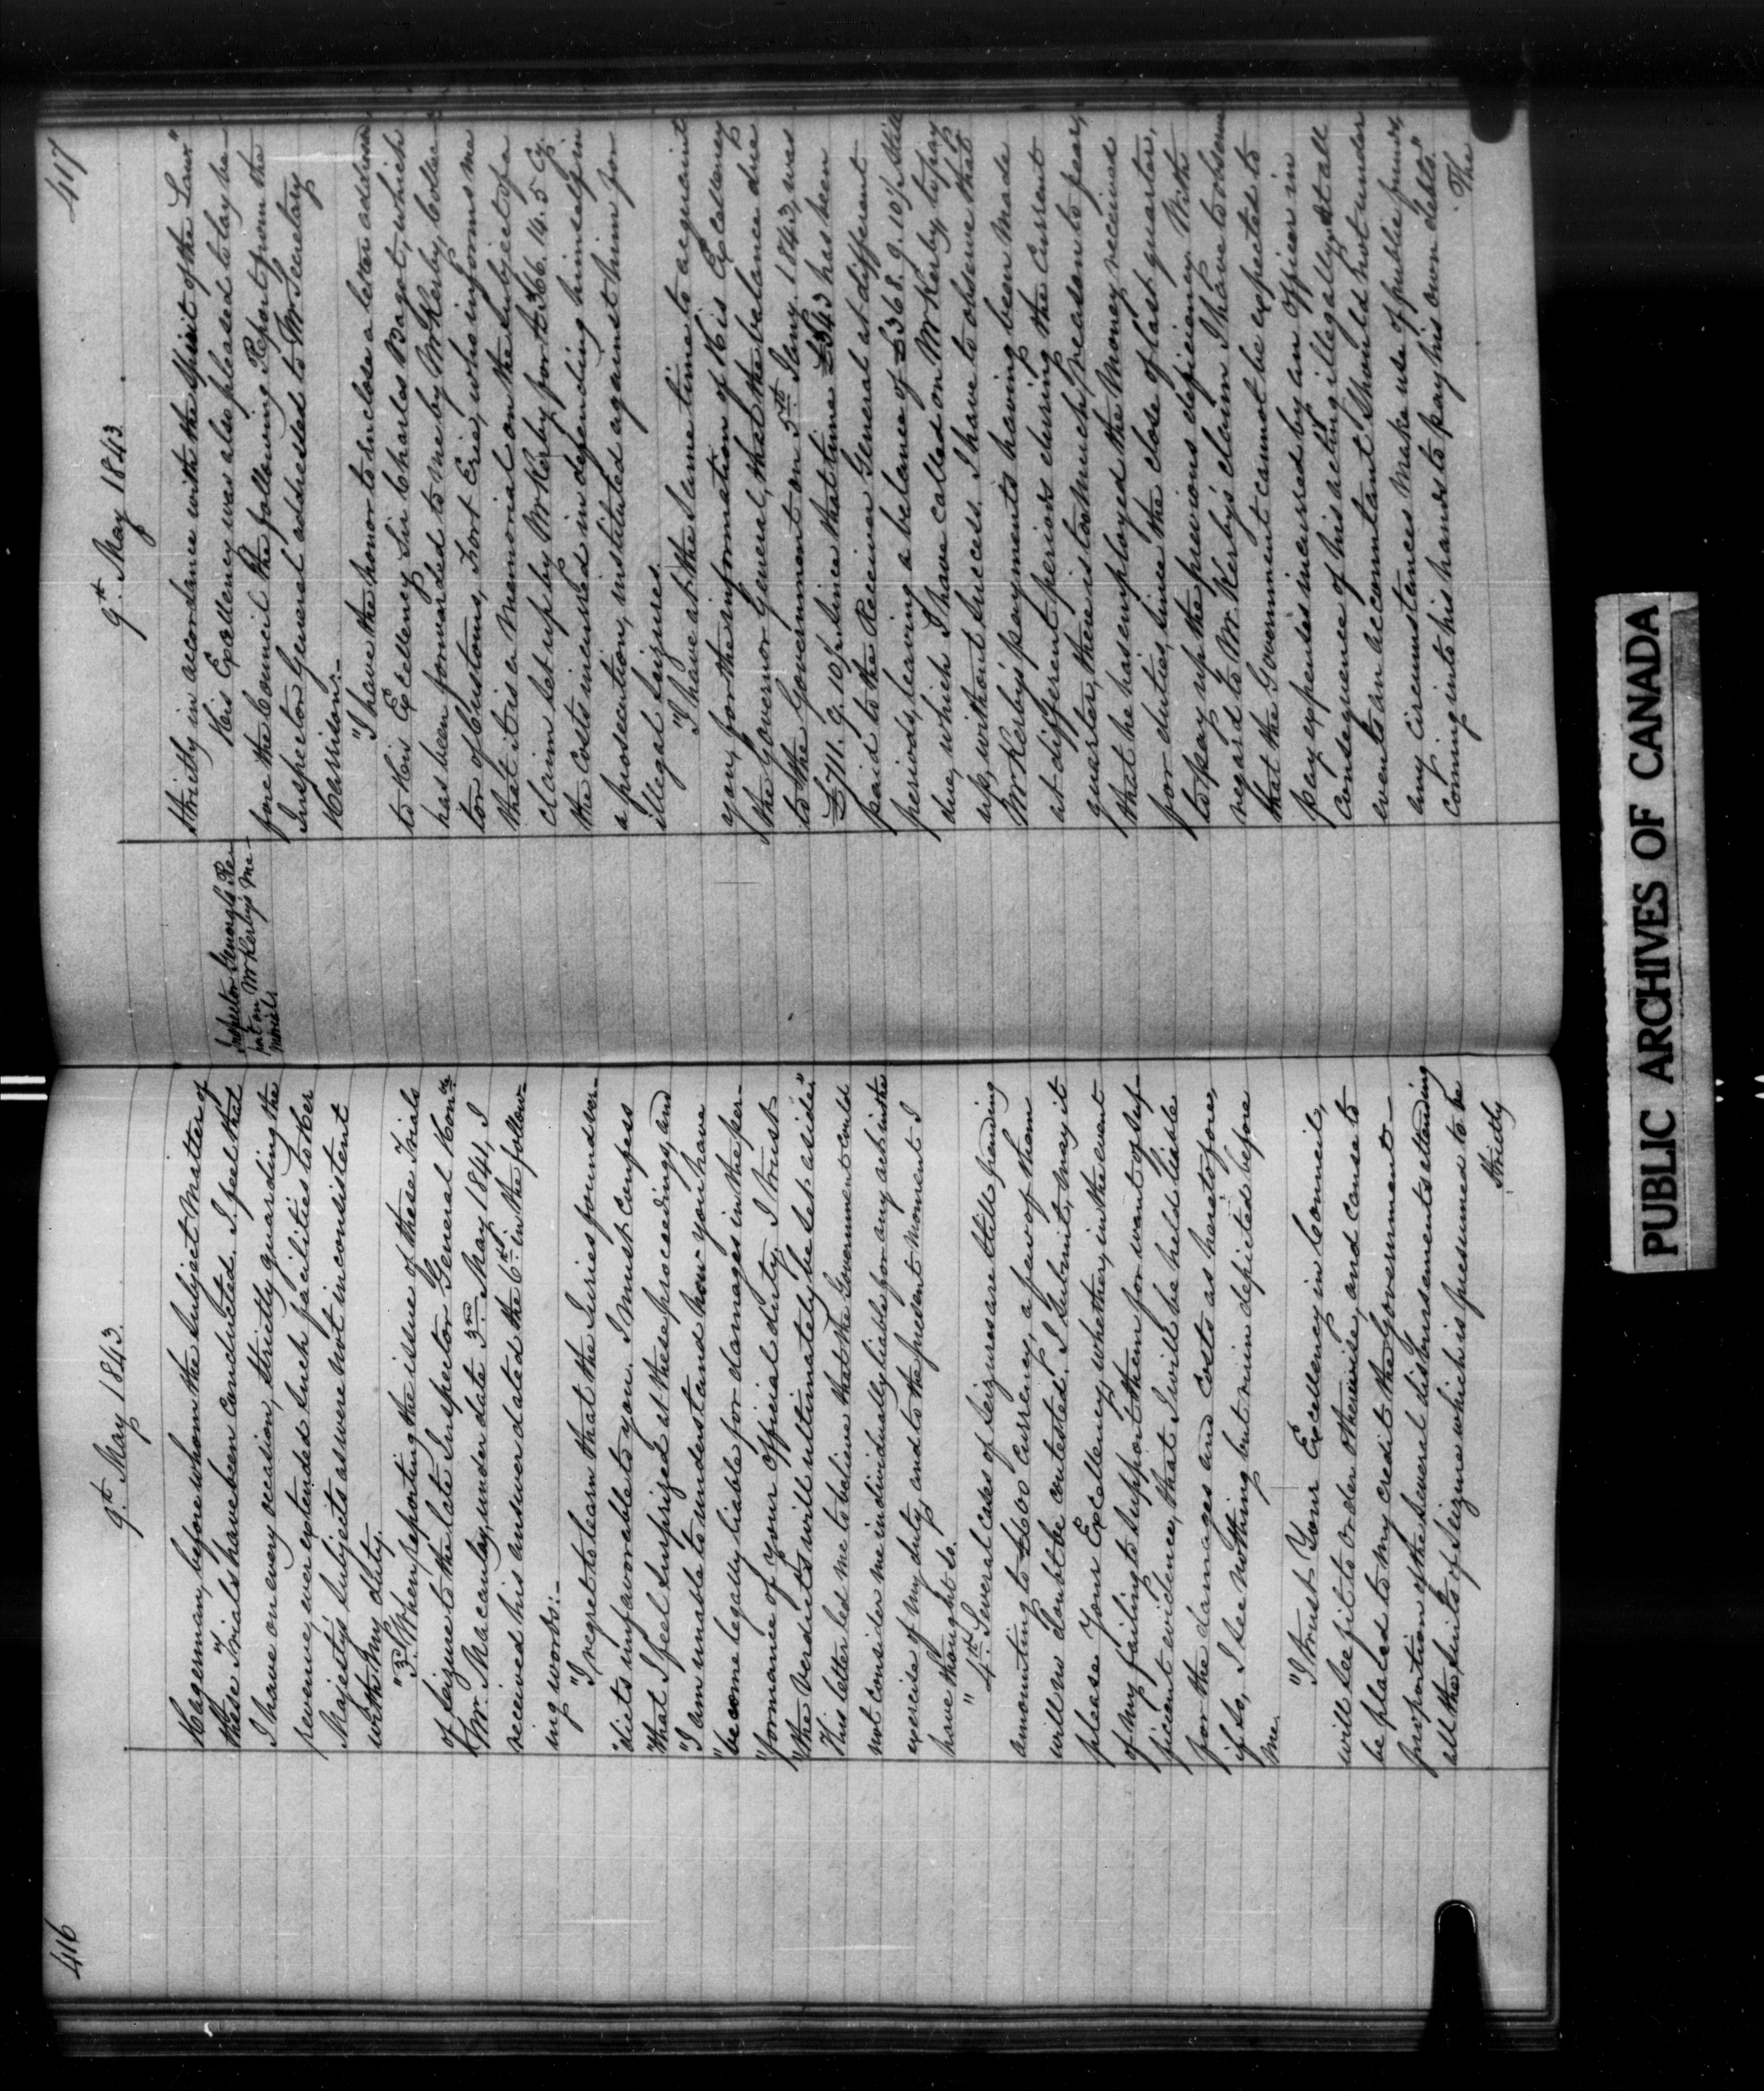 416
9th May 1843.
Hagerman, before whom the subject matter of
these Trials have been conducted. I feel that
I have on every occasion, strictly guarding the
revenue, ever extended such facilities to Her
Majesty's subjects as were not inconsistent
with my duty.
"3rd When reporting the issue of these Trials
of seizure to the late Inspector General Honble
Mr. Macaulay, under date 3rd May 1841, I
received his answer dated the 6th in the follow-
ing words:-
"I regret to learn that the Juries found ver-
"dicts unfavorable to you. I must confess
"that I feel surprized at these proceedings, and
"I am unable to understand how you have
"become legally liable for damages in the per-
"formance of your official duty. I trust
"the verdicts will ultimately be set aside."
This letter led me to believe that the Government could
not consider me individually liable for any act in the
exercise of my duty, and to the present moment I
have thought so.
"4th Several cases of seizures are still pending
amounting to £600 Currency, a few of them
will no doubt be contested. I submit, may it
please Your Excellency, whether, in the event
of my failing to support them for want of suf-
ficient evidence, that I will be held liable
for the damages and costs as heretofore,
if so, I see nothing but ruin depicted before
me.
"I trust Your Excellency in Council,
will see fit to order otherwise, and cause to
be placed to my credit the Government
proportion of the several disbursements attending
all the suits of seizure which is presumed to be
strictly
417
9th May 1843
strictly in accordance with the spirit of the Law"
His Excellency was also pleased to lay be-
fore the Council the following Report from the
Inspector General addressed to Mr Secretary
Harrison:-
Inspector General's Re-
port on Mr Kerby's Me-
morial
"I have the honor to enclose a letter addressed
to His Excellency Sir Charles Bagot, which
has been forwarded to me by Mr Kerby, Collec-
tor of Customs, Fort Erie, who informs me
that it is a Memorial on the subject of a
claim set up by Mr Kerby for £366. 14. 5 Cy.
the Costs incurred in defending himself in
a prosecution, instituted against him for
illegal seizures.
"I have at the same time to acquaint
you, for the information of His Excellency
the Governor General, that the balance due
to the Government on 5th Jany. 1843, was
£711. 9. 10½ since that time £343 has been
paid to the Receiver General at different
periods, leaving a balance of £368. 9. 10½ still
due, which I have called on Mr Kerby to pay
up, without success. I have to observe that
Mr Kerby's payments having been made
at different periods during the Current
quarter, there is too much reason to fear,
that he has employed the Money received
for duties, since the close of last quarter,
to pay up the previous deficiency. With
regard to Mr. Kerby's claim I have to observe
that the Government cannot be expected to
pay expenses incurred by an Officer in
consequence of his acting illegally, at all
events an accountant should not under
any circumstances make use of public funds,
coming into his hands to pay his own debts."
The
PUBLIC ARCHIVES OF CANADA